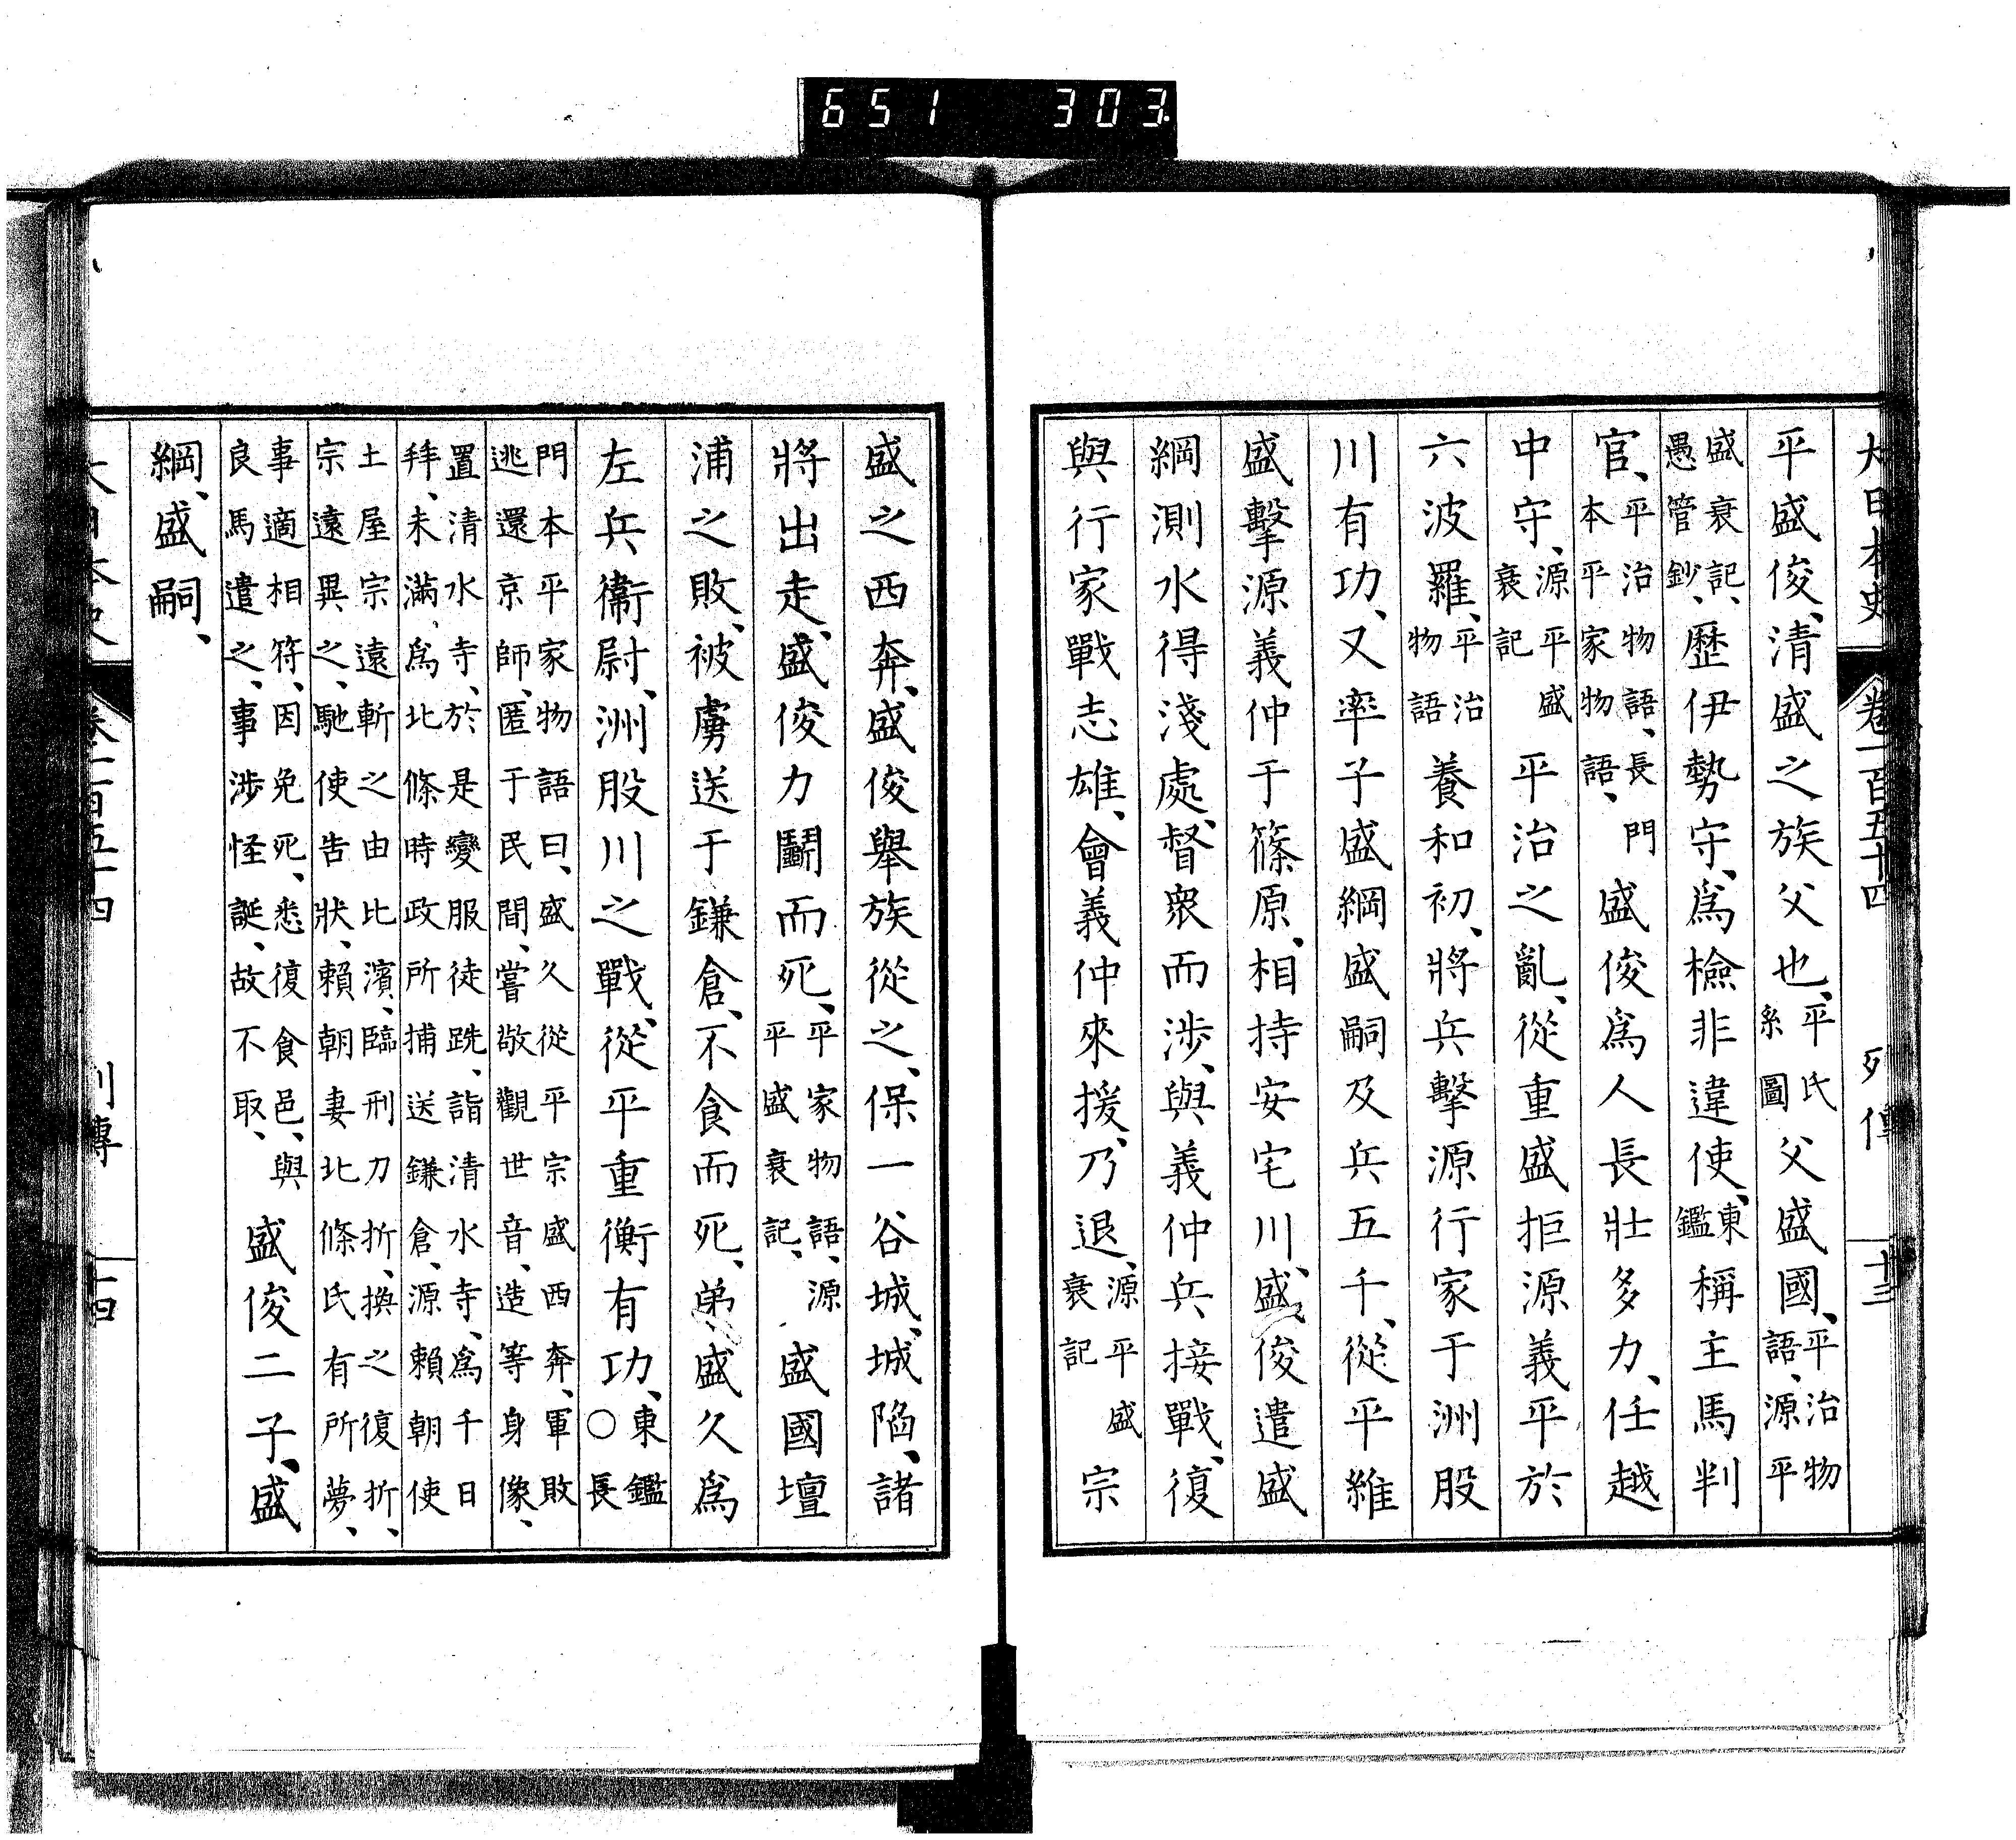 651 303
大日本史 卷一百五十四 列傳 十三
平盛俊、清盛之族父也、平氏系圖父盛國、平治物語、源平
盛衰記、愚管鈔、歷伊勢守、爲檢非違使、東鑑稱主馬判
官、平治物語、長門本平家物語、盛俊爲人長壯多力、任越
中守、源平盛衰記平治之亂、從重盛拒源義平於
六波羅、平治物語養和初、將兵擊源行家于洲股
川有功、又率子盛綱盛嗣及兵五千、從平維
盛擊源義仲于篠原、相持安宅川、盛俊遣盛
綱測水得淺處、督衆而涉、與義仲兵接戰、復
與行家戰志雄、會義仲來援、乃退、源平盛衰記宗
盛之西奔、盛俊舉族從之、保一谷城、城陷、諸
將出走、盛俊力鬭而死、平家物語、源平盛衰記、盛國壇
浦之敗、被虜送于鎌倉、不食而死、弟盛久爲
左兵衞尉、洲股川之戰、從平重衡有功、東鑑○長
門本平家物語曰、盛久從平宗盛西奔、軍敗逃還京師、匿于民間、嘗敬觀世音、造等身像、
置清水寺、於是變服徒跣、詣清水寺、爲千日拜、未滿、爲北條時政所捕送鎌倉、源賴朝使
土屋宗遠斬之由比濱、臨刑刀折、換之復折、宗遠異之、馳使告狀、賴朝妻北條氏有所夢、
事適相符、因免死、悉復食邑、與良馬遣之、事涉怪誕、故不取、盛俊二子、盛
綱、盛嗣、
大日本史 卷一百五十四 列傳 十四